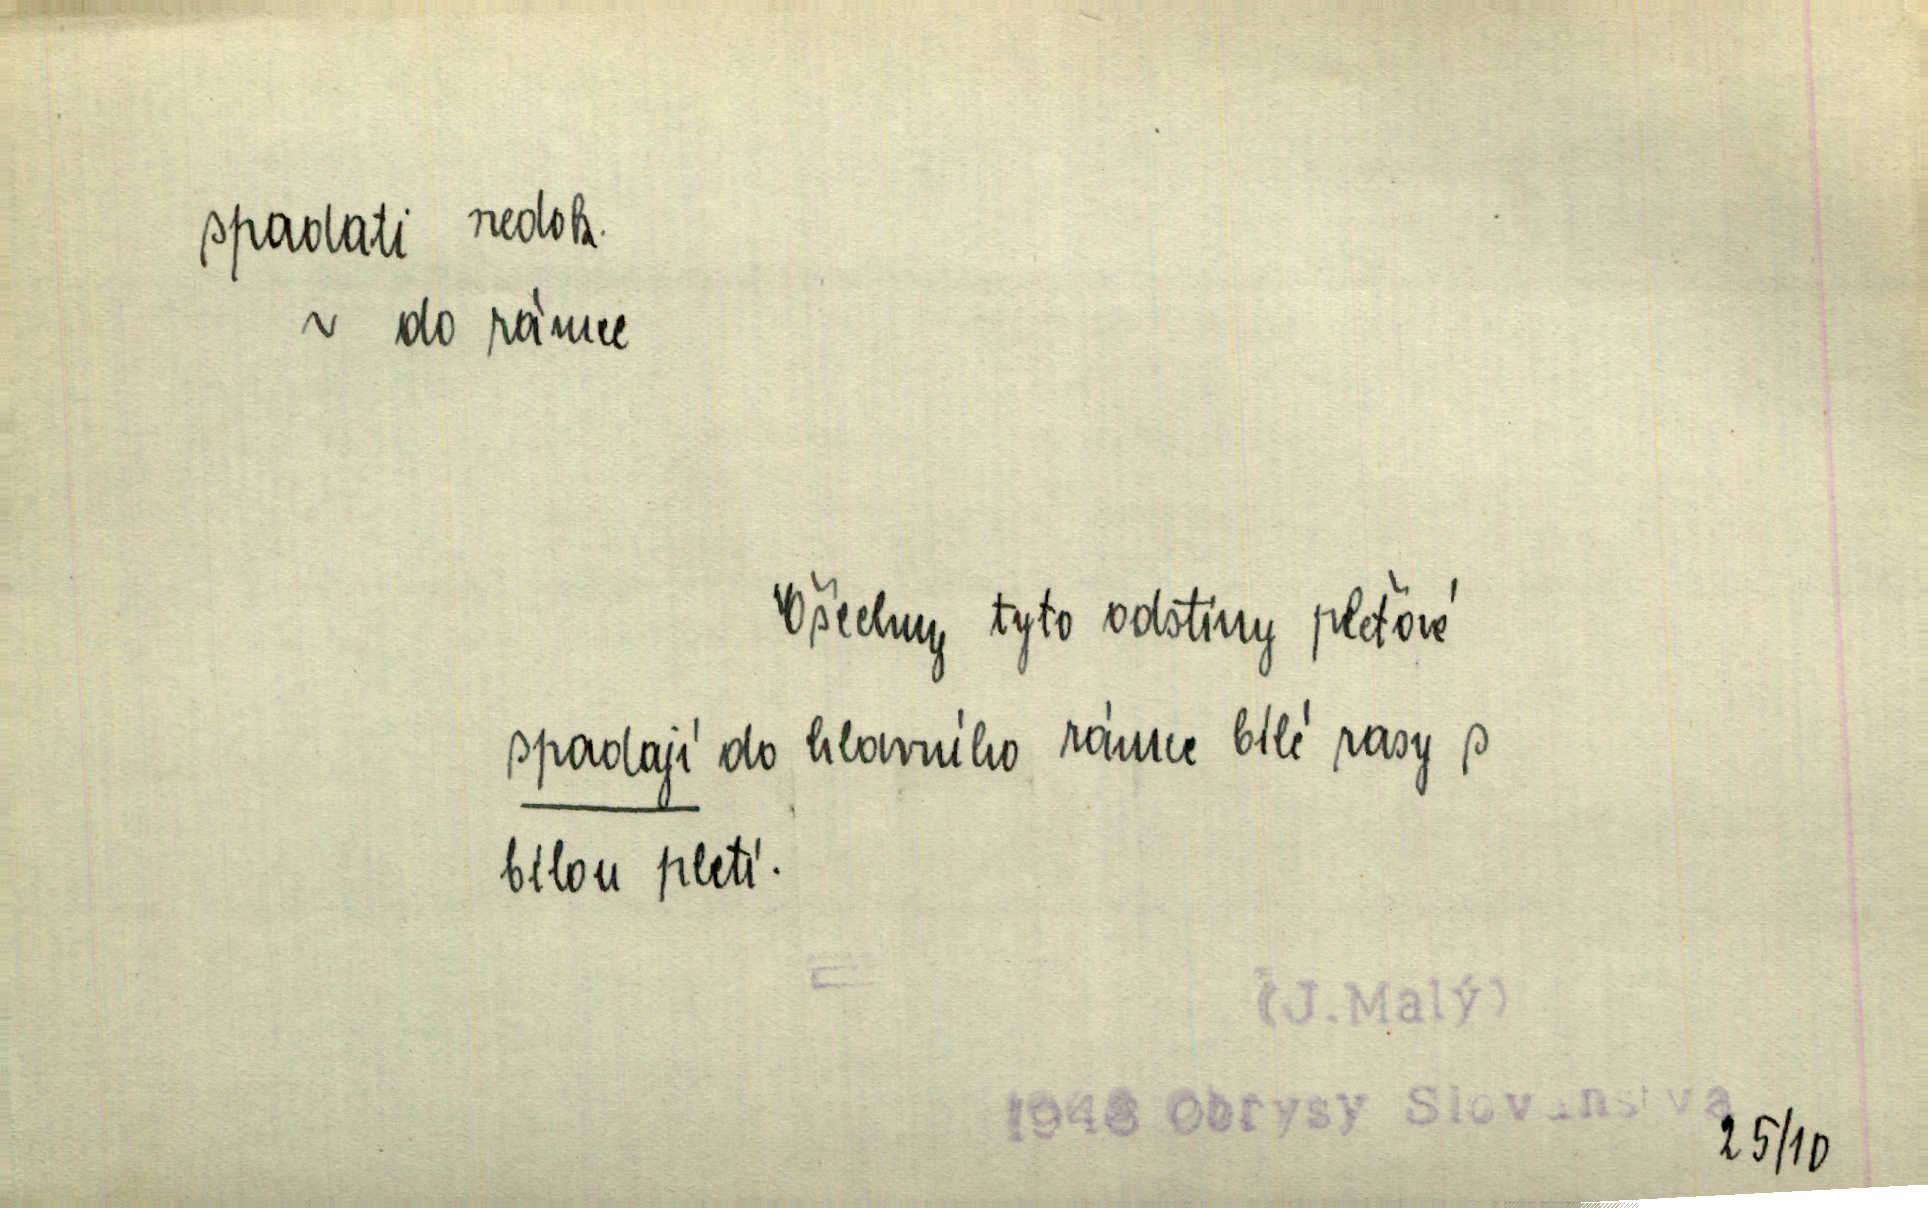 spadati nedok.
~ do rámce
Všechny tyto odstíny pleťové
spadají do hlavního rámce bílé rasy s
bílou pletí.
(J.Malý)
1948 Obrysy Slovanstva
25/10